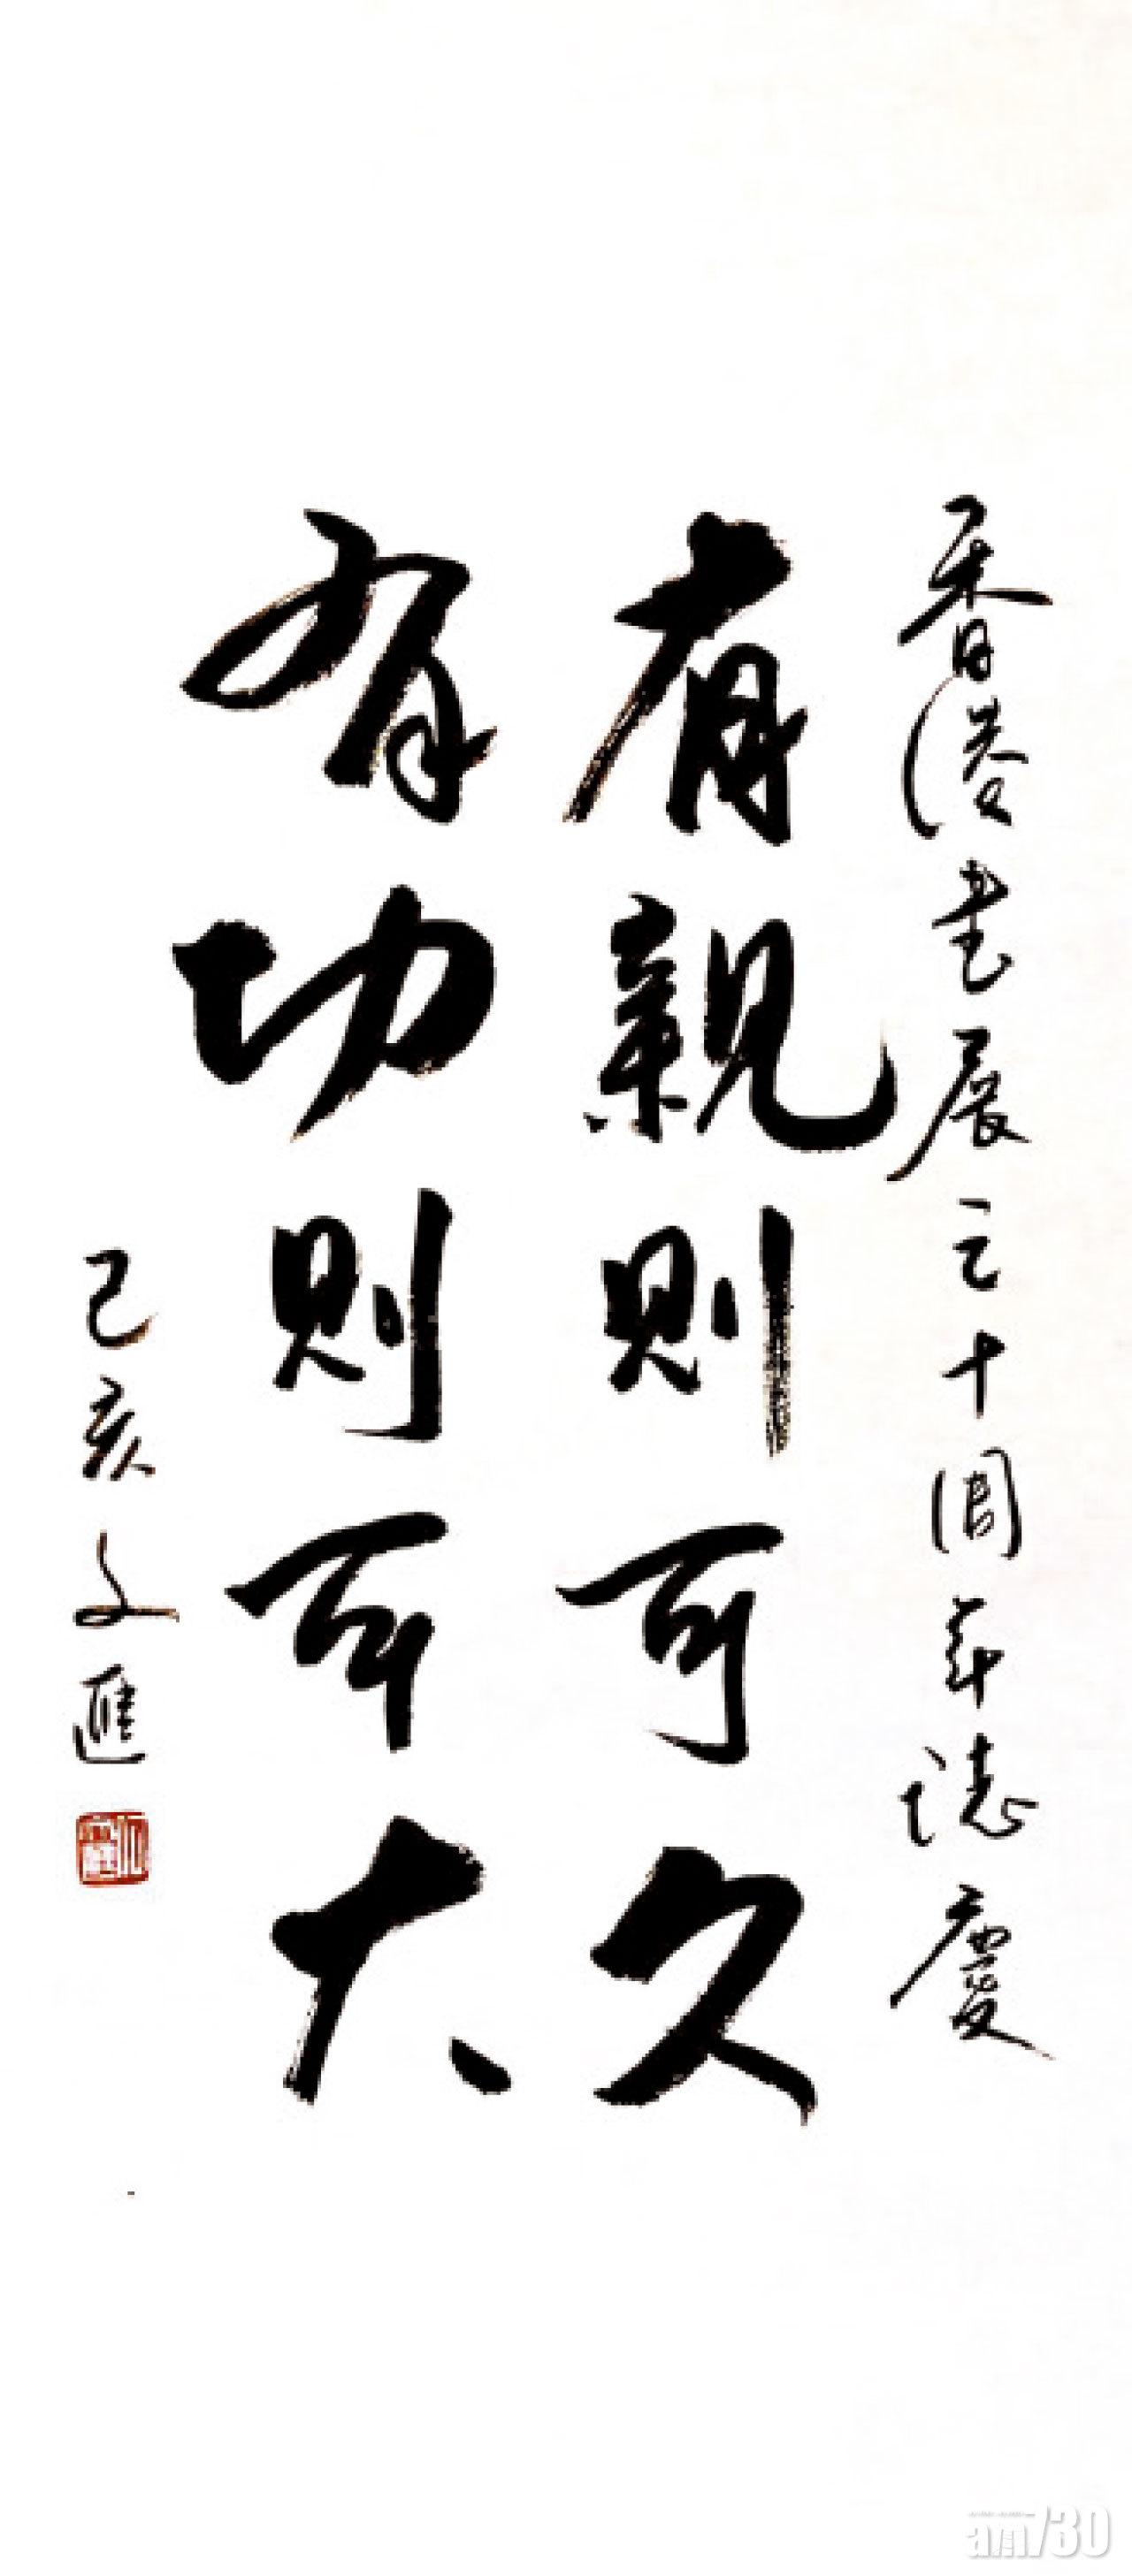 香港書展三十周年誌慶
有親則可久
有功則可大
己亥文匯
am730